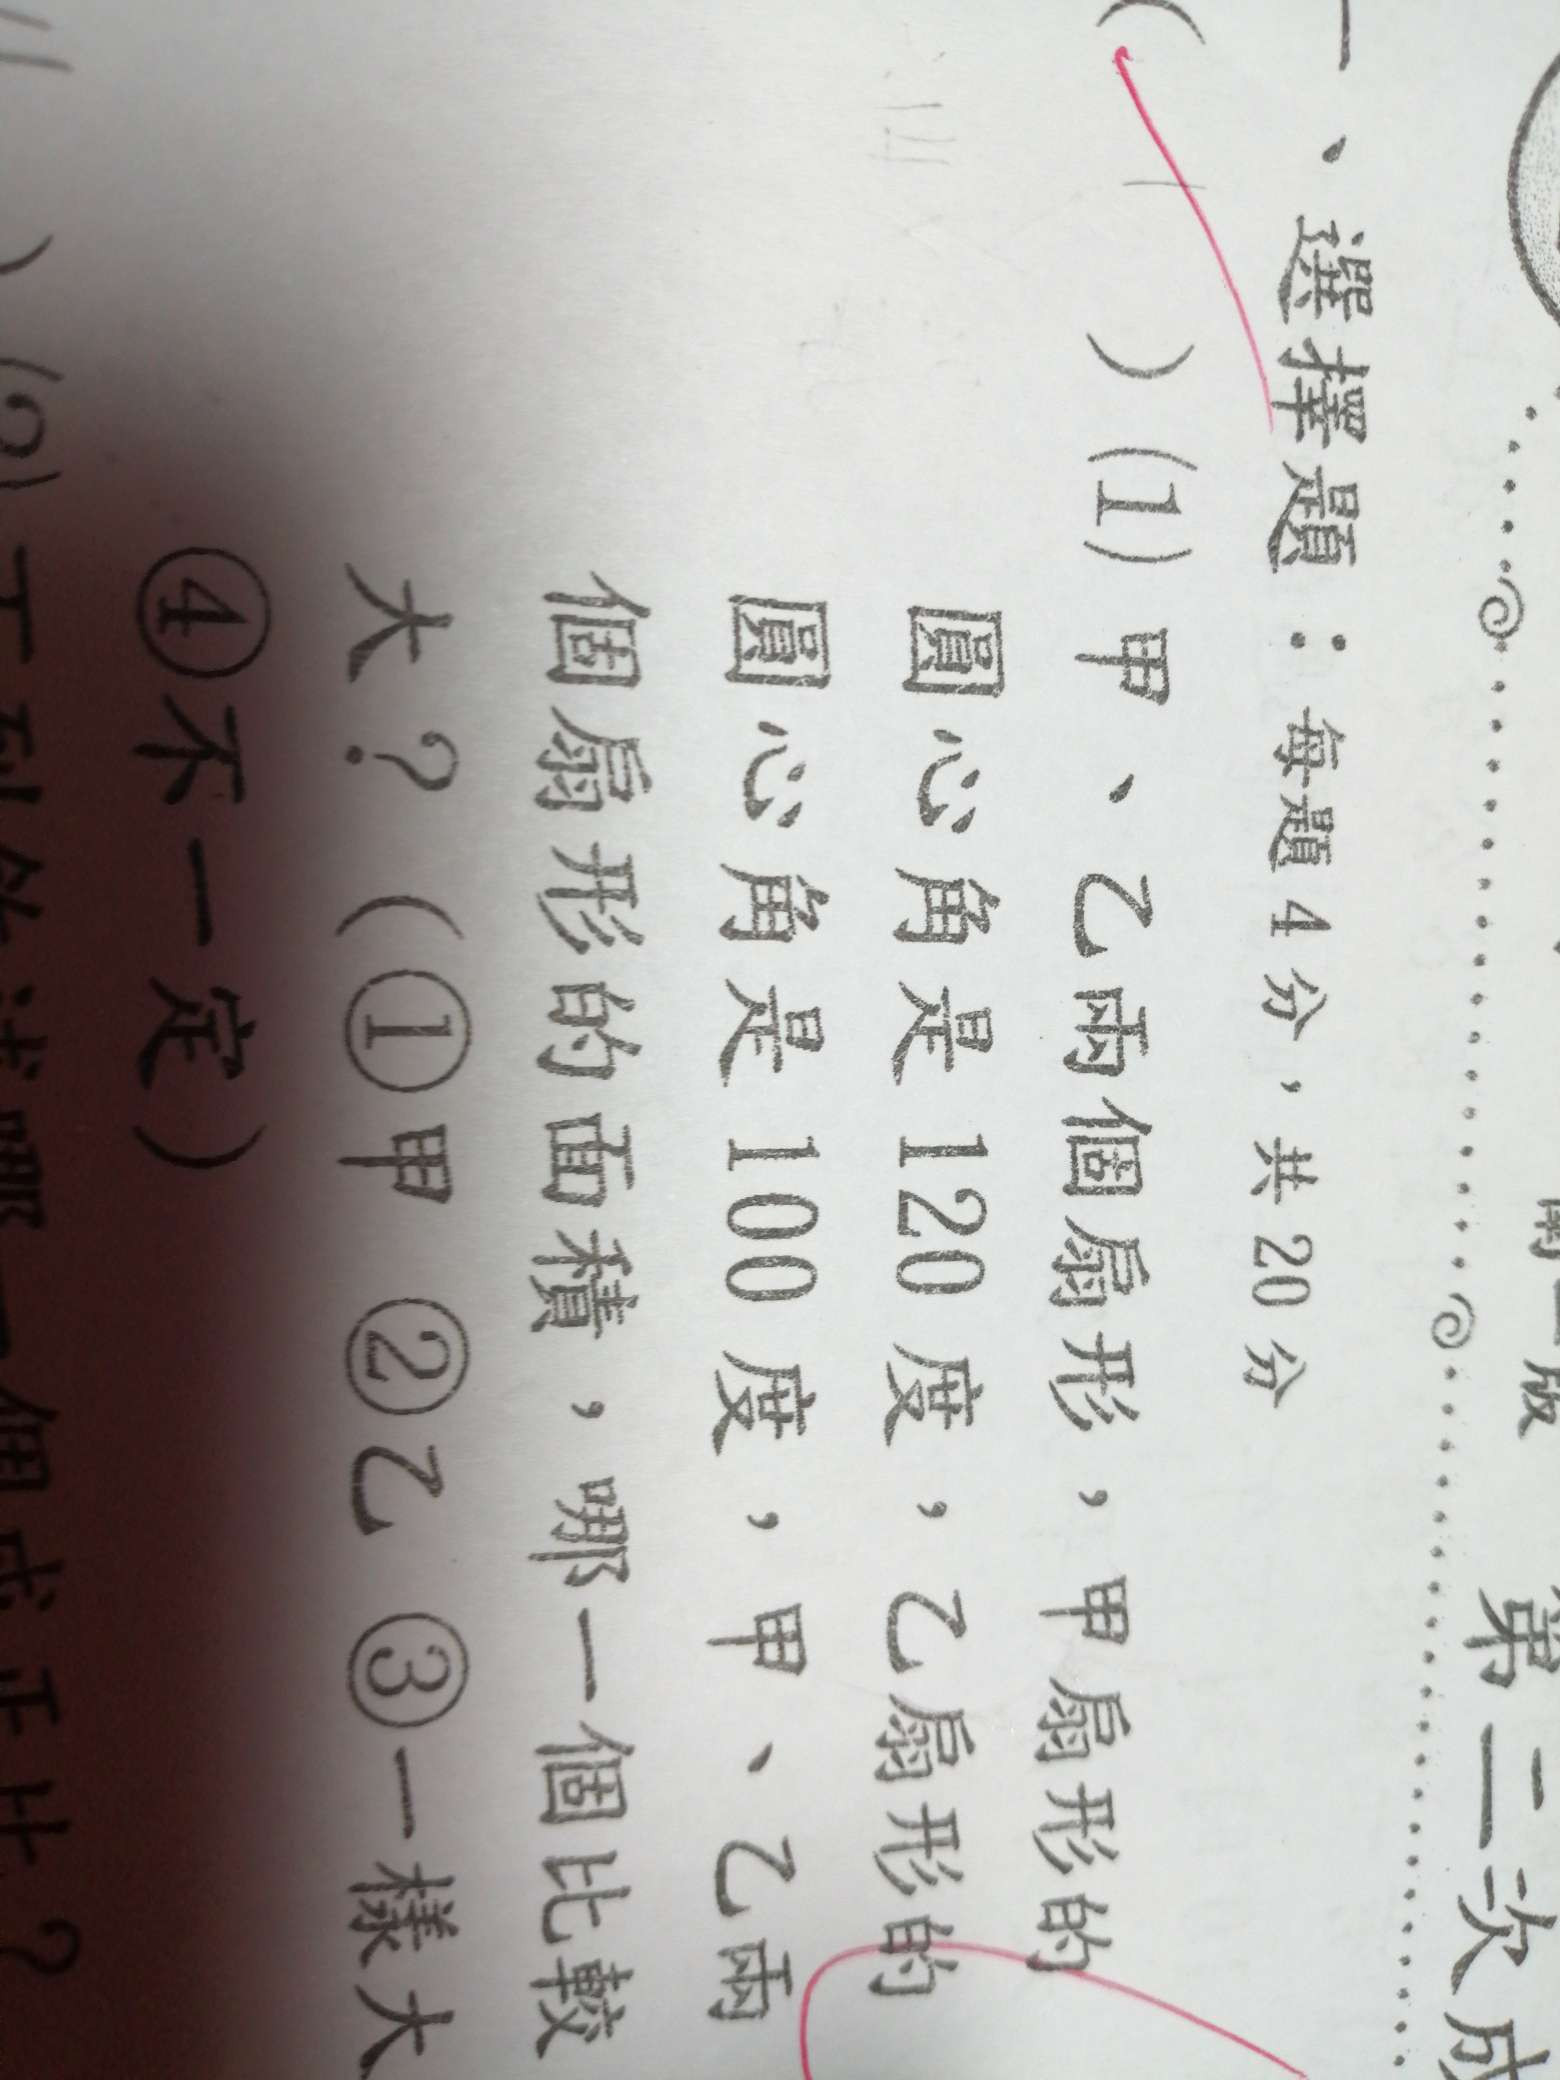 第二次成
一、選擇題：每題4分，共20分
( 1 )(1)甲、乙兩個扇形，甲扇形的
圓心角是120度，乙扇形的
圓心角是100度，甲、乙兩
個扇形的面積，哪一個比較
大？（①甲 ②乙 ③一樣大
④不一定）